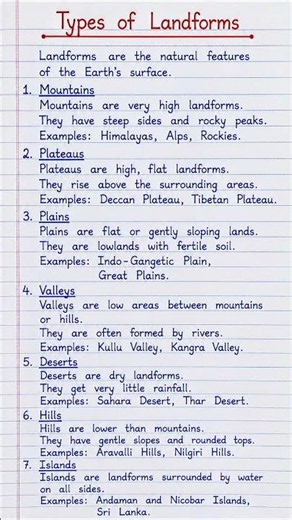 Types of Landforms
Landforms are the natural features
of the Earth's surface.
1. Mountains
Mountains are very high landforms.
They have steep sides and rocky peaks.
Examples: Himalayas, Alps, Rockies.
2. Plateaus
Plateaus are high, flat landforms.
They rise above the surrounding areas.
Examples: Deccan Plateau, Tibetan Plateau.
3. Plains
Plains are flat or gently sloping lands.
They are lowlands with fertile soil.
Examples: Indo-Gangetic Plain,
Great Plains.
4. Valleys
Valleys are low areas between mountains
or hills.
They are often formed by rivers.
Examples: Kullu Valley, Kangra Valley.
5. Deserts
Deserts are dry landforms.
They get very little rainfall.
Examples: Sahara Desert, Thar Desert.
6. Hills
Hills are lower than mountains.
They have gentle slopes and rounded tops.
Examples: Aravalli Hills, Nilgiri Hills.
7. Islands
Islands are landforms surrounded by water
on all sides.
Examples: Andaman and Nicobar Islands,
Sri Lanka.